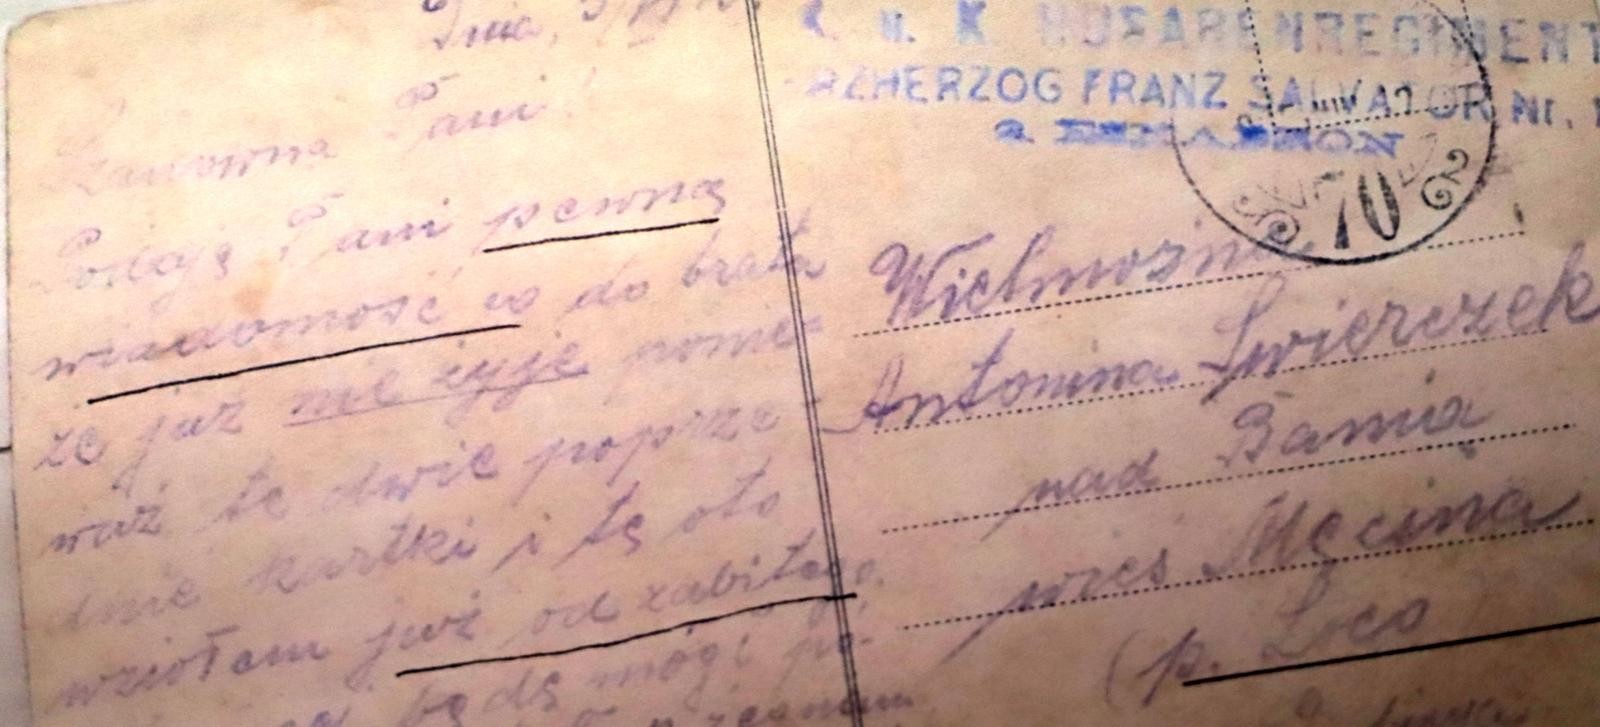 Dnia,
Szanowna Pani!
Podaję Pani pewną
wiadomość co do brata
że już nie żyje ponie-
waż te dwie poprze-
dnie kartki i tę oto
wziołem już od zabitego.
będę mógł po-
K. u. K. HUSARENREGIMENT
ERZHERZOG FRANZ SALVATOR Nr.
70
Wielmożna
Antonina Świerczek
nad Banią
wieś Męcina
(p. Loco